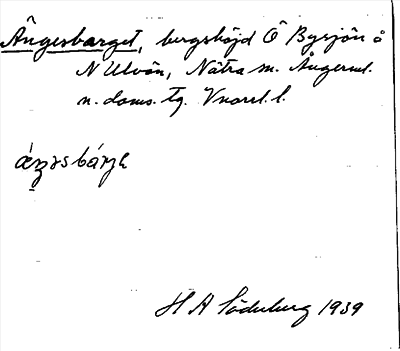 Ångesbarget, bergshöjd Ö Bysjön å
N Ulvön, Nätra sn. Ångerml.
n. doms. tg. Vnorrl. l.
H A Söderberg 1939